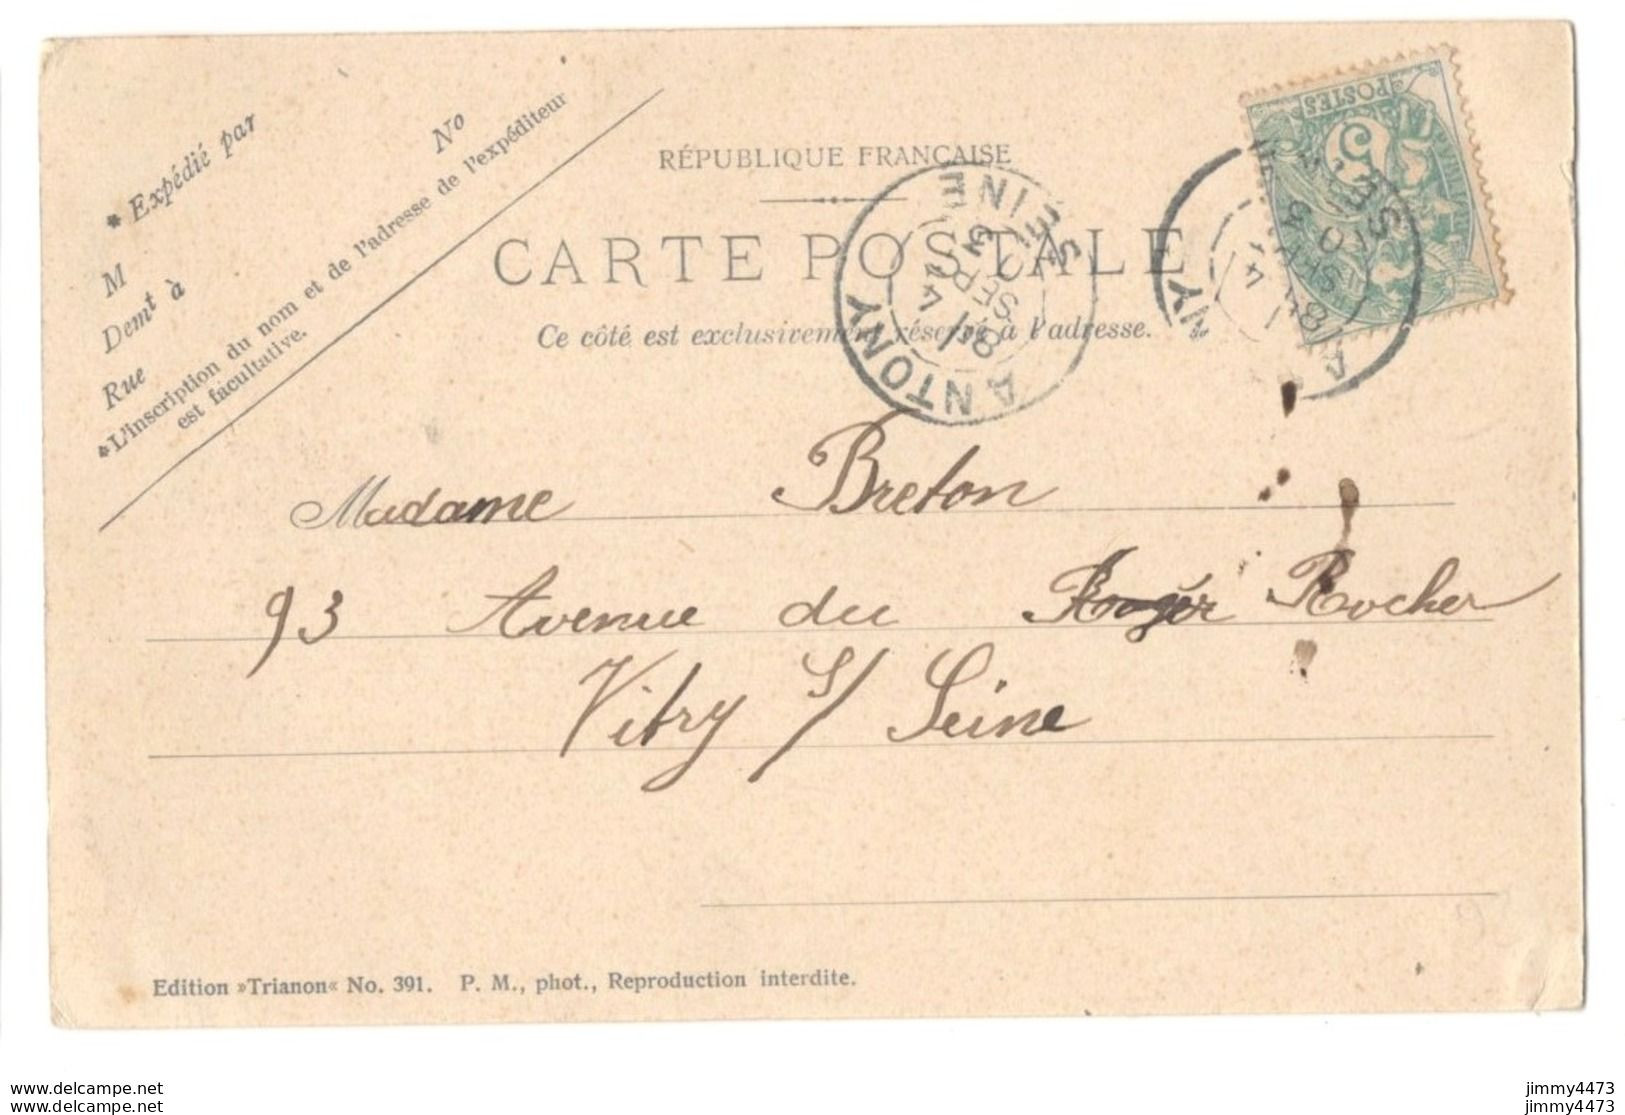 * Expédié par
No
M
Demt à
Rue
*L'inscription du nom et de l'adresse de l'expéditeur
est facultative.
RÉPUBLIQUE FRANÇAISE
CARTE POSTALE
Ce côté est exclusivement réservé à l'adresse.
POSTES
5
ANTONY
SEINE
8
SEPT
Madame Breton
93 Avenue du Rocher
Vitry s/ Seine
Edition »Trianon« No. 391. P. M., phot., Reproduction interdite.
www.delcampe.net
www.delcampe.net
jimmy4473
jimmy4473